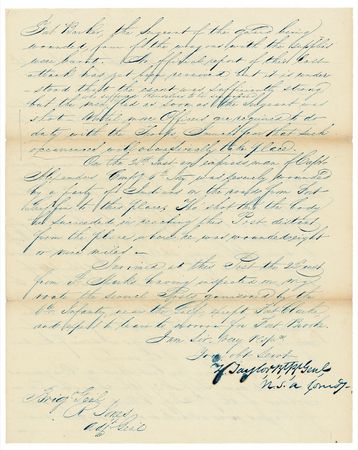 the Sergeant of the guard being
wounded four of the wagons with the supplies
were burnt. An official report of this last
attack has just been received but it is under-
stood that the escort was sufficiently strong
but the men fled as soon as the Sergeant was
shot. Until more Officers are required to do
duty with the troops such
occurrences will occasionally take place.
On the 20th Inst an express man of Capt
was severely wounded
by a party of Indians on the road from Fort
to this place. He shot
he succeeded in reaching this Post distant
from the place where he was wounded eight
or more miles.
I arrived at this Post the
from having inspected on my
route the several Posts garrisoned by the
6th Infantry, near the Gulf, except Fort
and expect to leave to morrow for Fort Brooke.
I am Sir, very resp
Your Obt Servt
Z. Taylor Bt Br Genl
U.S.A Comdg
Brig Genl
R Jones
Adjt Genl